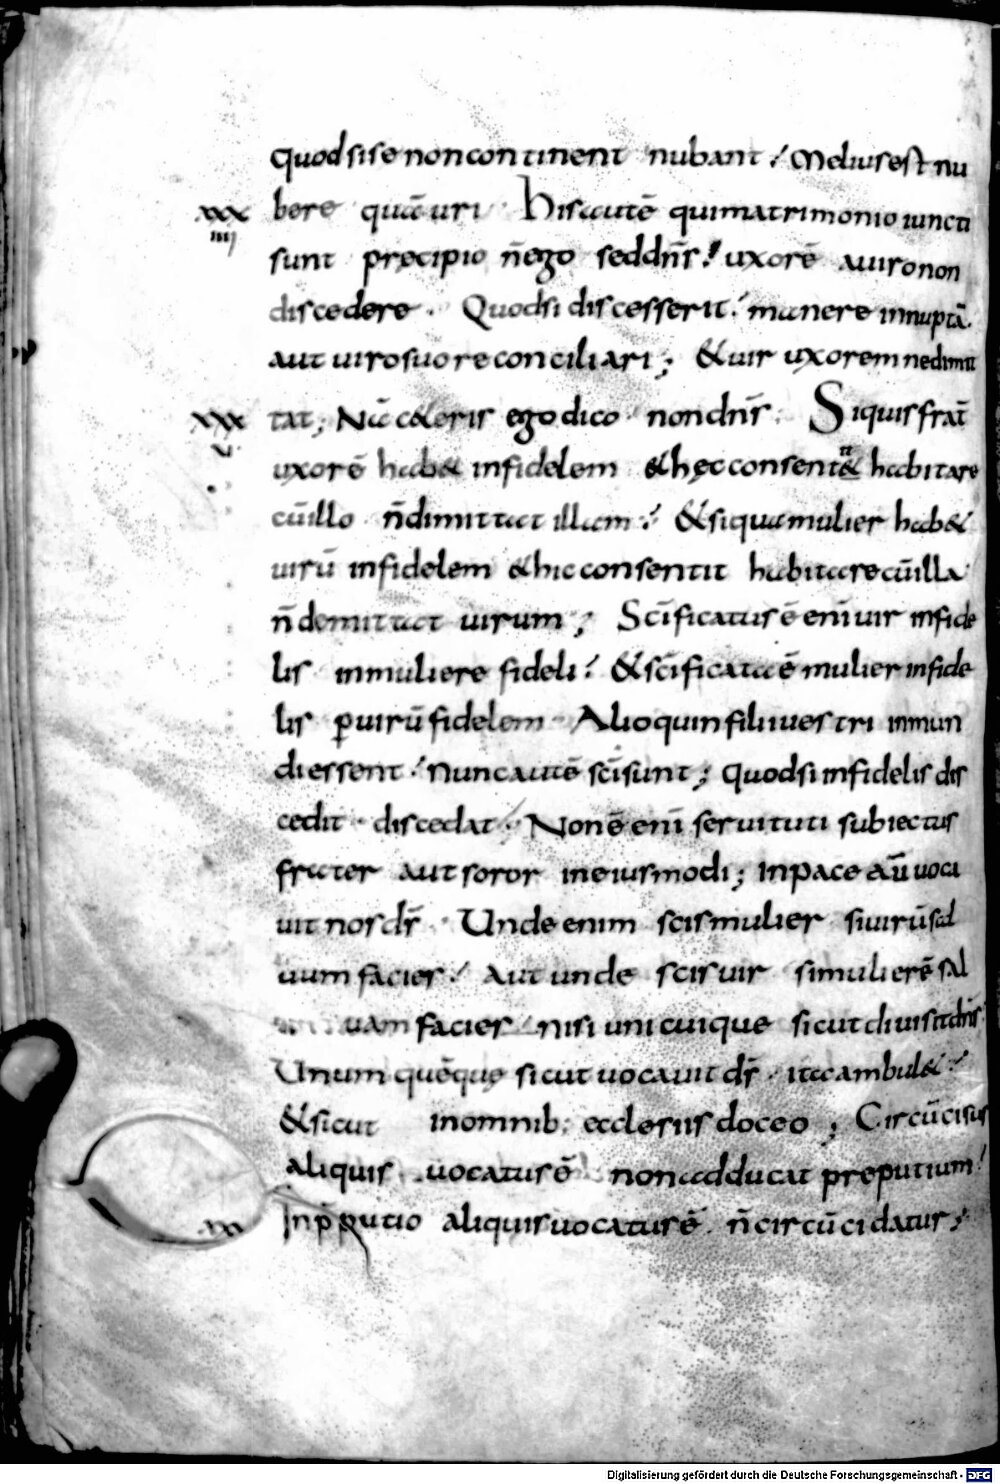 quod si se non continent nubant; Melius est nu
xxx bere quā uri. His autē qui matrimonio iuncti
iiii sunt precipio n̄ ego sed dn̄s; uxorē a uiro non
discedere. Quod si discesserit; manere innuptā.
aut uiro suo reconciliari; & uir uxorem ne dimit
xxx tat; Nā c&eris ego dico non dn̄s. Siquis frat̄
v uxorē hab& infidelem & hęc consent& habitare
cū illo n̄ dimittat illam; & siqua mulier hab&
uirū infidelem & hic consentit habitare cū illa
n̄ demittat uirum; Sc̄ificatus ē enī uir infide
lis in muliere fideli; & sc̄ificata ē mulier infide
lis p̱ uirū fidelem. Alioquin filii uestri inmun
di essent; Nunc autē sc̄i sunt; quod si infidelis dis
cedit. discedat. Non ē enī seruituti subiectus
frater aut soror in eiusmodi; in pace aū uoca
uit nos ds̄. Unde enim scis mulier si uirū sal
uum facies; Aut unde scis uir si mulierē sal
uam facies nisi unicuique sicut diuisit dn̄s
Unum quēque sicut uocauit ds̄. ita ambul&;
& sicut in omnib; ecclesiis doceo; Circūcisus
aliquis uocatus ē non adducat preputium;
In p̄putio aliquis uocatus ē. n̄ circūcidatur;
Digitalisierung gefördert durch die Deutsche Forschungsgemeinschaft - DFG